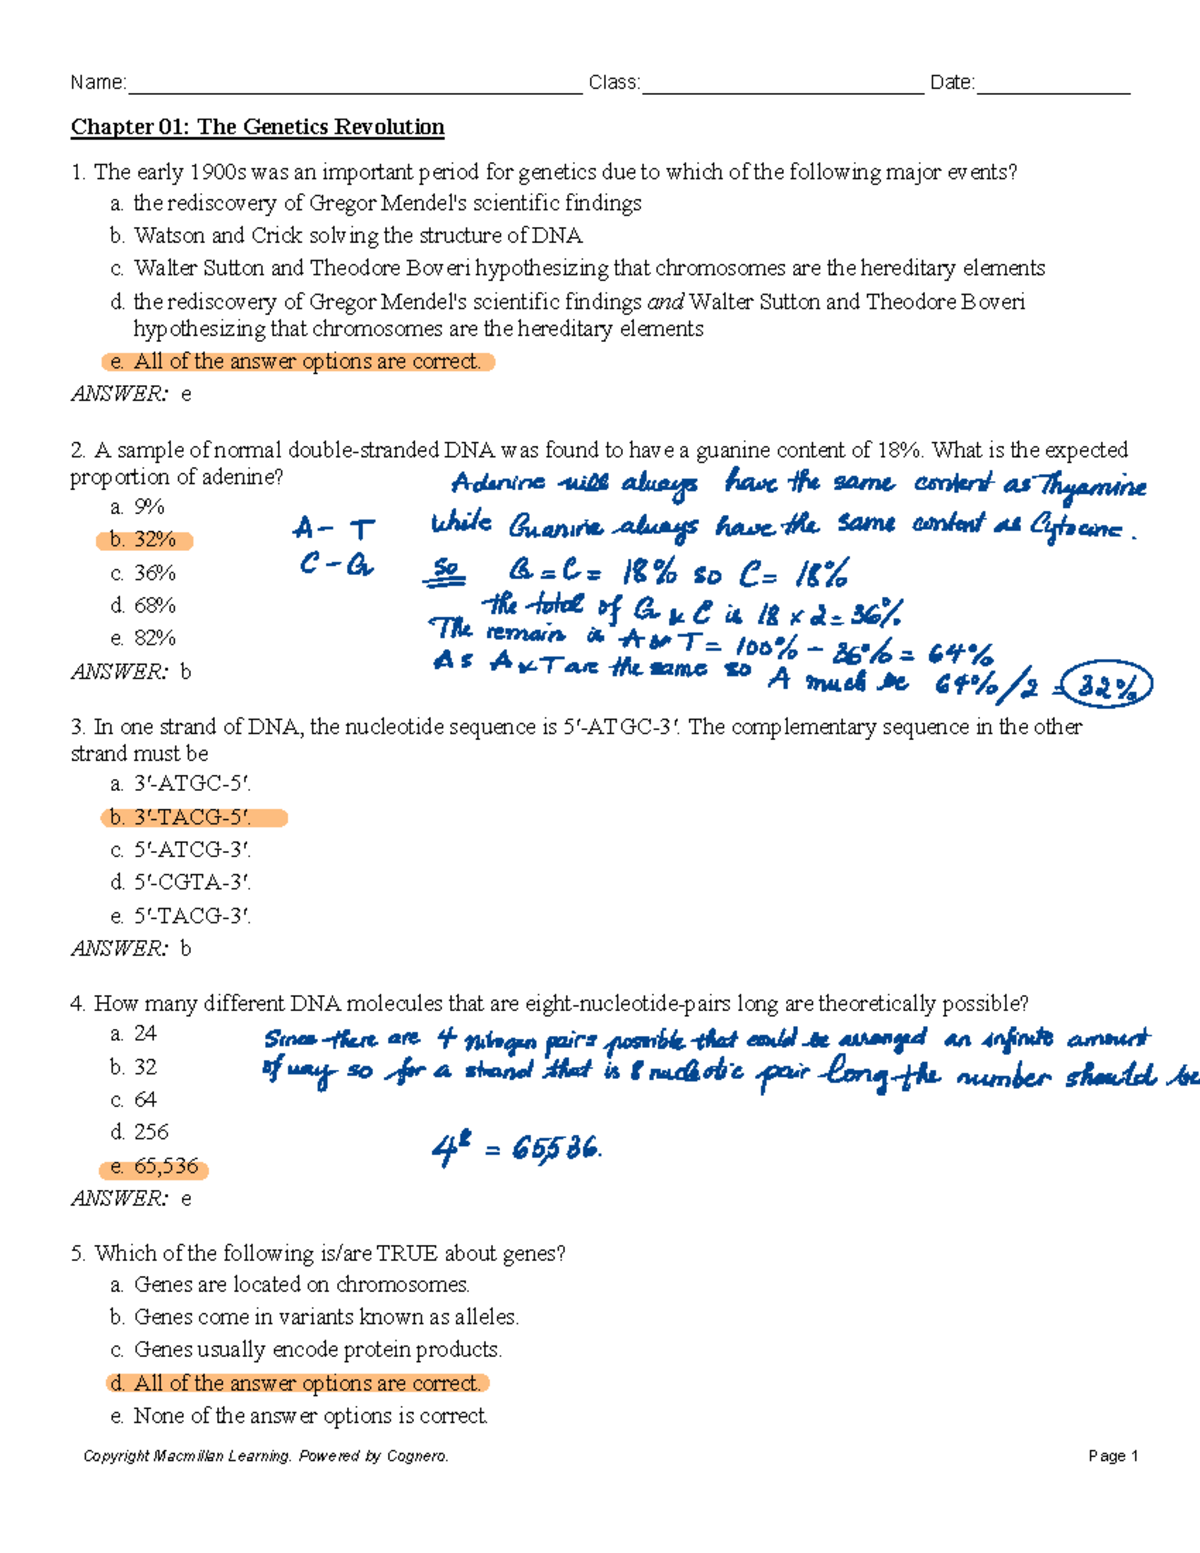 Name: Class: Date:
Chapter 01: The Genetics Revolution
1. The early 1900s was an important period for genetics due to which of the following major events?
a. the rediscovery of Gregor Mendel's scientific findings
b. Watson and Crick solving the structure of DNA
c. Walter Sutton and Theodore Boveri hypothesizing that chromosomes are the hereditary elements
d. the rediscovery of Gregor Mendel's scientific findings and Walter Sutton and Theodore Boveri
hypothesizing that chromosomes are the hereditary elements
e. All of the answer options are correct.
ANSWER: e
2. A sample of normal double-stranded DNA was found to have a guanine content of 18%. What is the expected
proportion of adenine?
Adenine will always have the same content as Thyamine
a. 9%
A - T while Guanine always have the same content as Cytocine.
b. 32%
C - G so G = C = 18% so C = 18%
c. 36%
the total of G & C is 18 x 2 = 36%
d. 68%
The remain is A & T = 100% - 36% = 64%
e. 82%
As A & T are the same so A much be 64%/2 = 32%
ANSWER: b
3. In one strand of DNA, the nucleotide sequence is 5′-ATGC-3′. The complementary sequence in the other
strand must be
a. 3′-ATGC-5′.
b. 3′-TACG-5′.
c. 5′-ATCG-3′.
d. 5′-CGTA-3′.
e. 5′-TACG-3′.
ANSWER: b
4. How many different DNA molecules that are eight-nucleotide-pairs long are theoretically possible?
a. 24
Since there are 4 nitrogen pairs possible that could be arranged an infinite amount
b. 32
of way so for a strand that is 8 nucleotic pair long the number should be
c. 64
d. 256
4⁸ = 65,536.
e. 65,536
ANSWER: e
5. Which of the following is/are TRUE about genes?
a. Genes are located on chromosomes.
b. Genes come in variants known as alleles.
c. Genes usually encode protein products.
d. All of the answer options are correct.
e. None of the answer options is correct.
Copyright Macmillan Learning. Powered by Cognero. Page 1